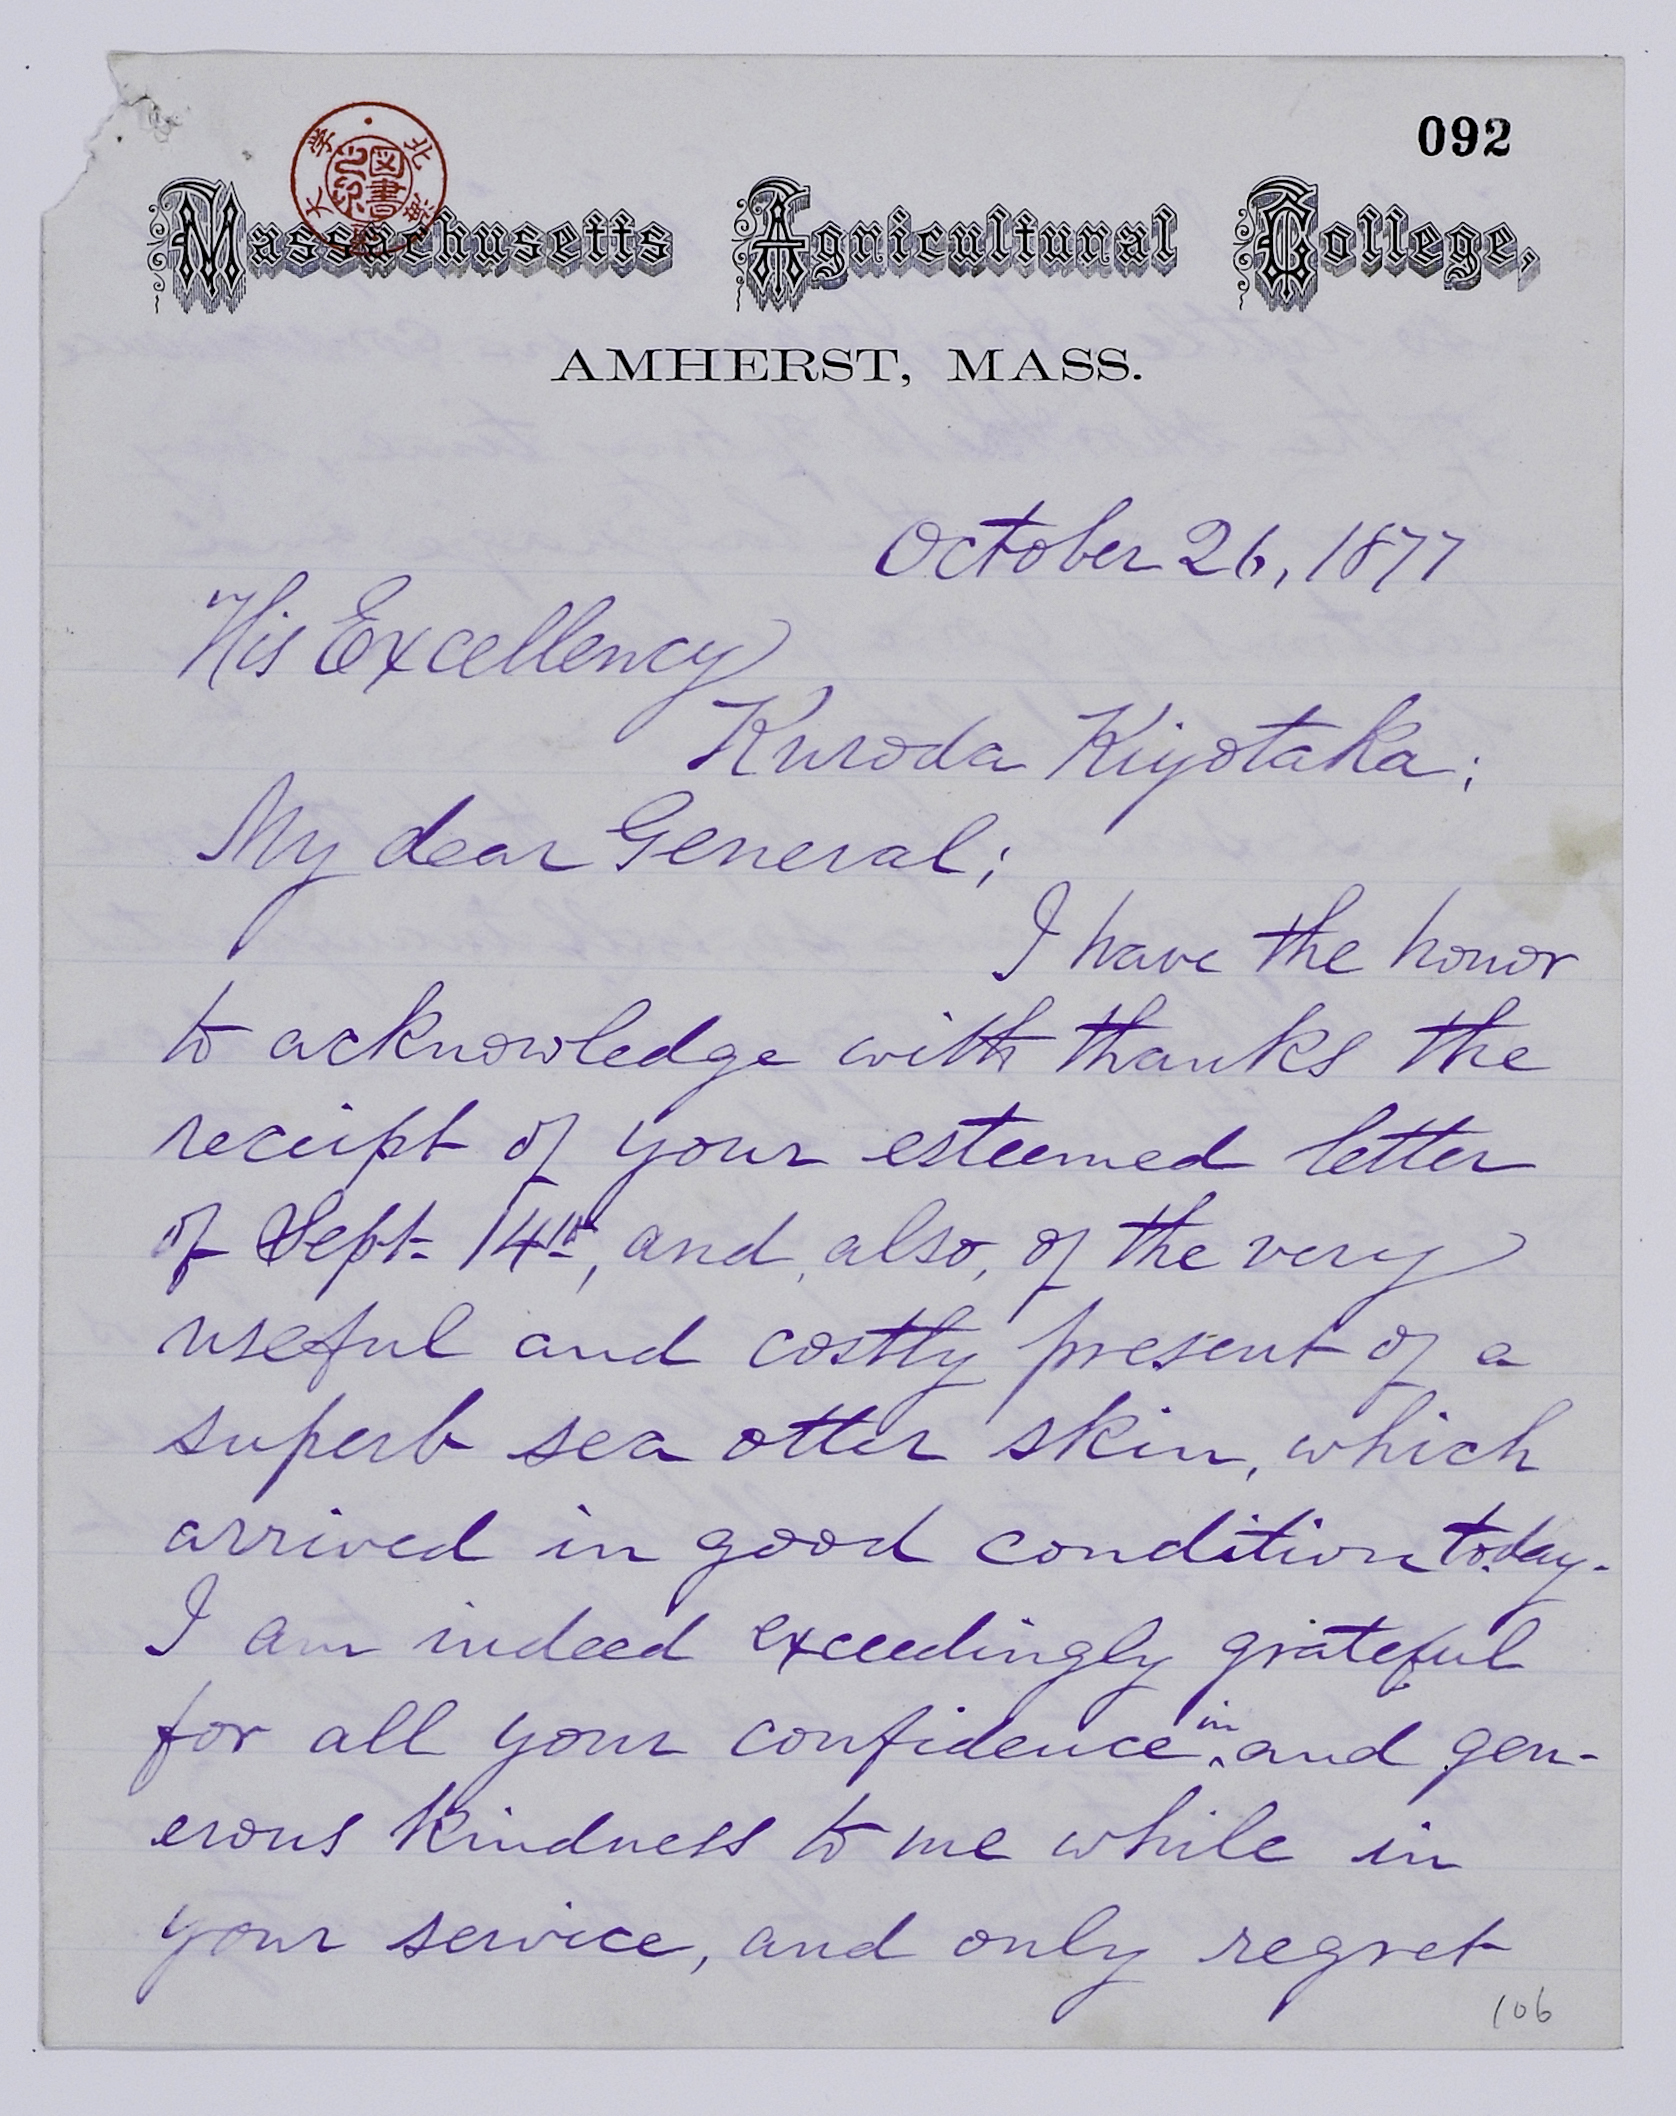 092
北海大学
図書之印
Massachusetts Agricultural College,
AMHERST, MASS.
October 26, 1877
His Excellency
Kuroda Kiyotaka;
My dear General;
I have the honor
to acknowledge with thanks the
receipt of your esteemed letter
of Sept. 14th, and, also, of the very
useful and costly present of a
superb sea otter skin, which
arrived in good condition to-day.
I am indeed exceedingly grateful
for all your confidence in, and gen-
erous kindness to me while in
your service, and only regret
106